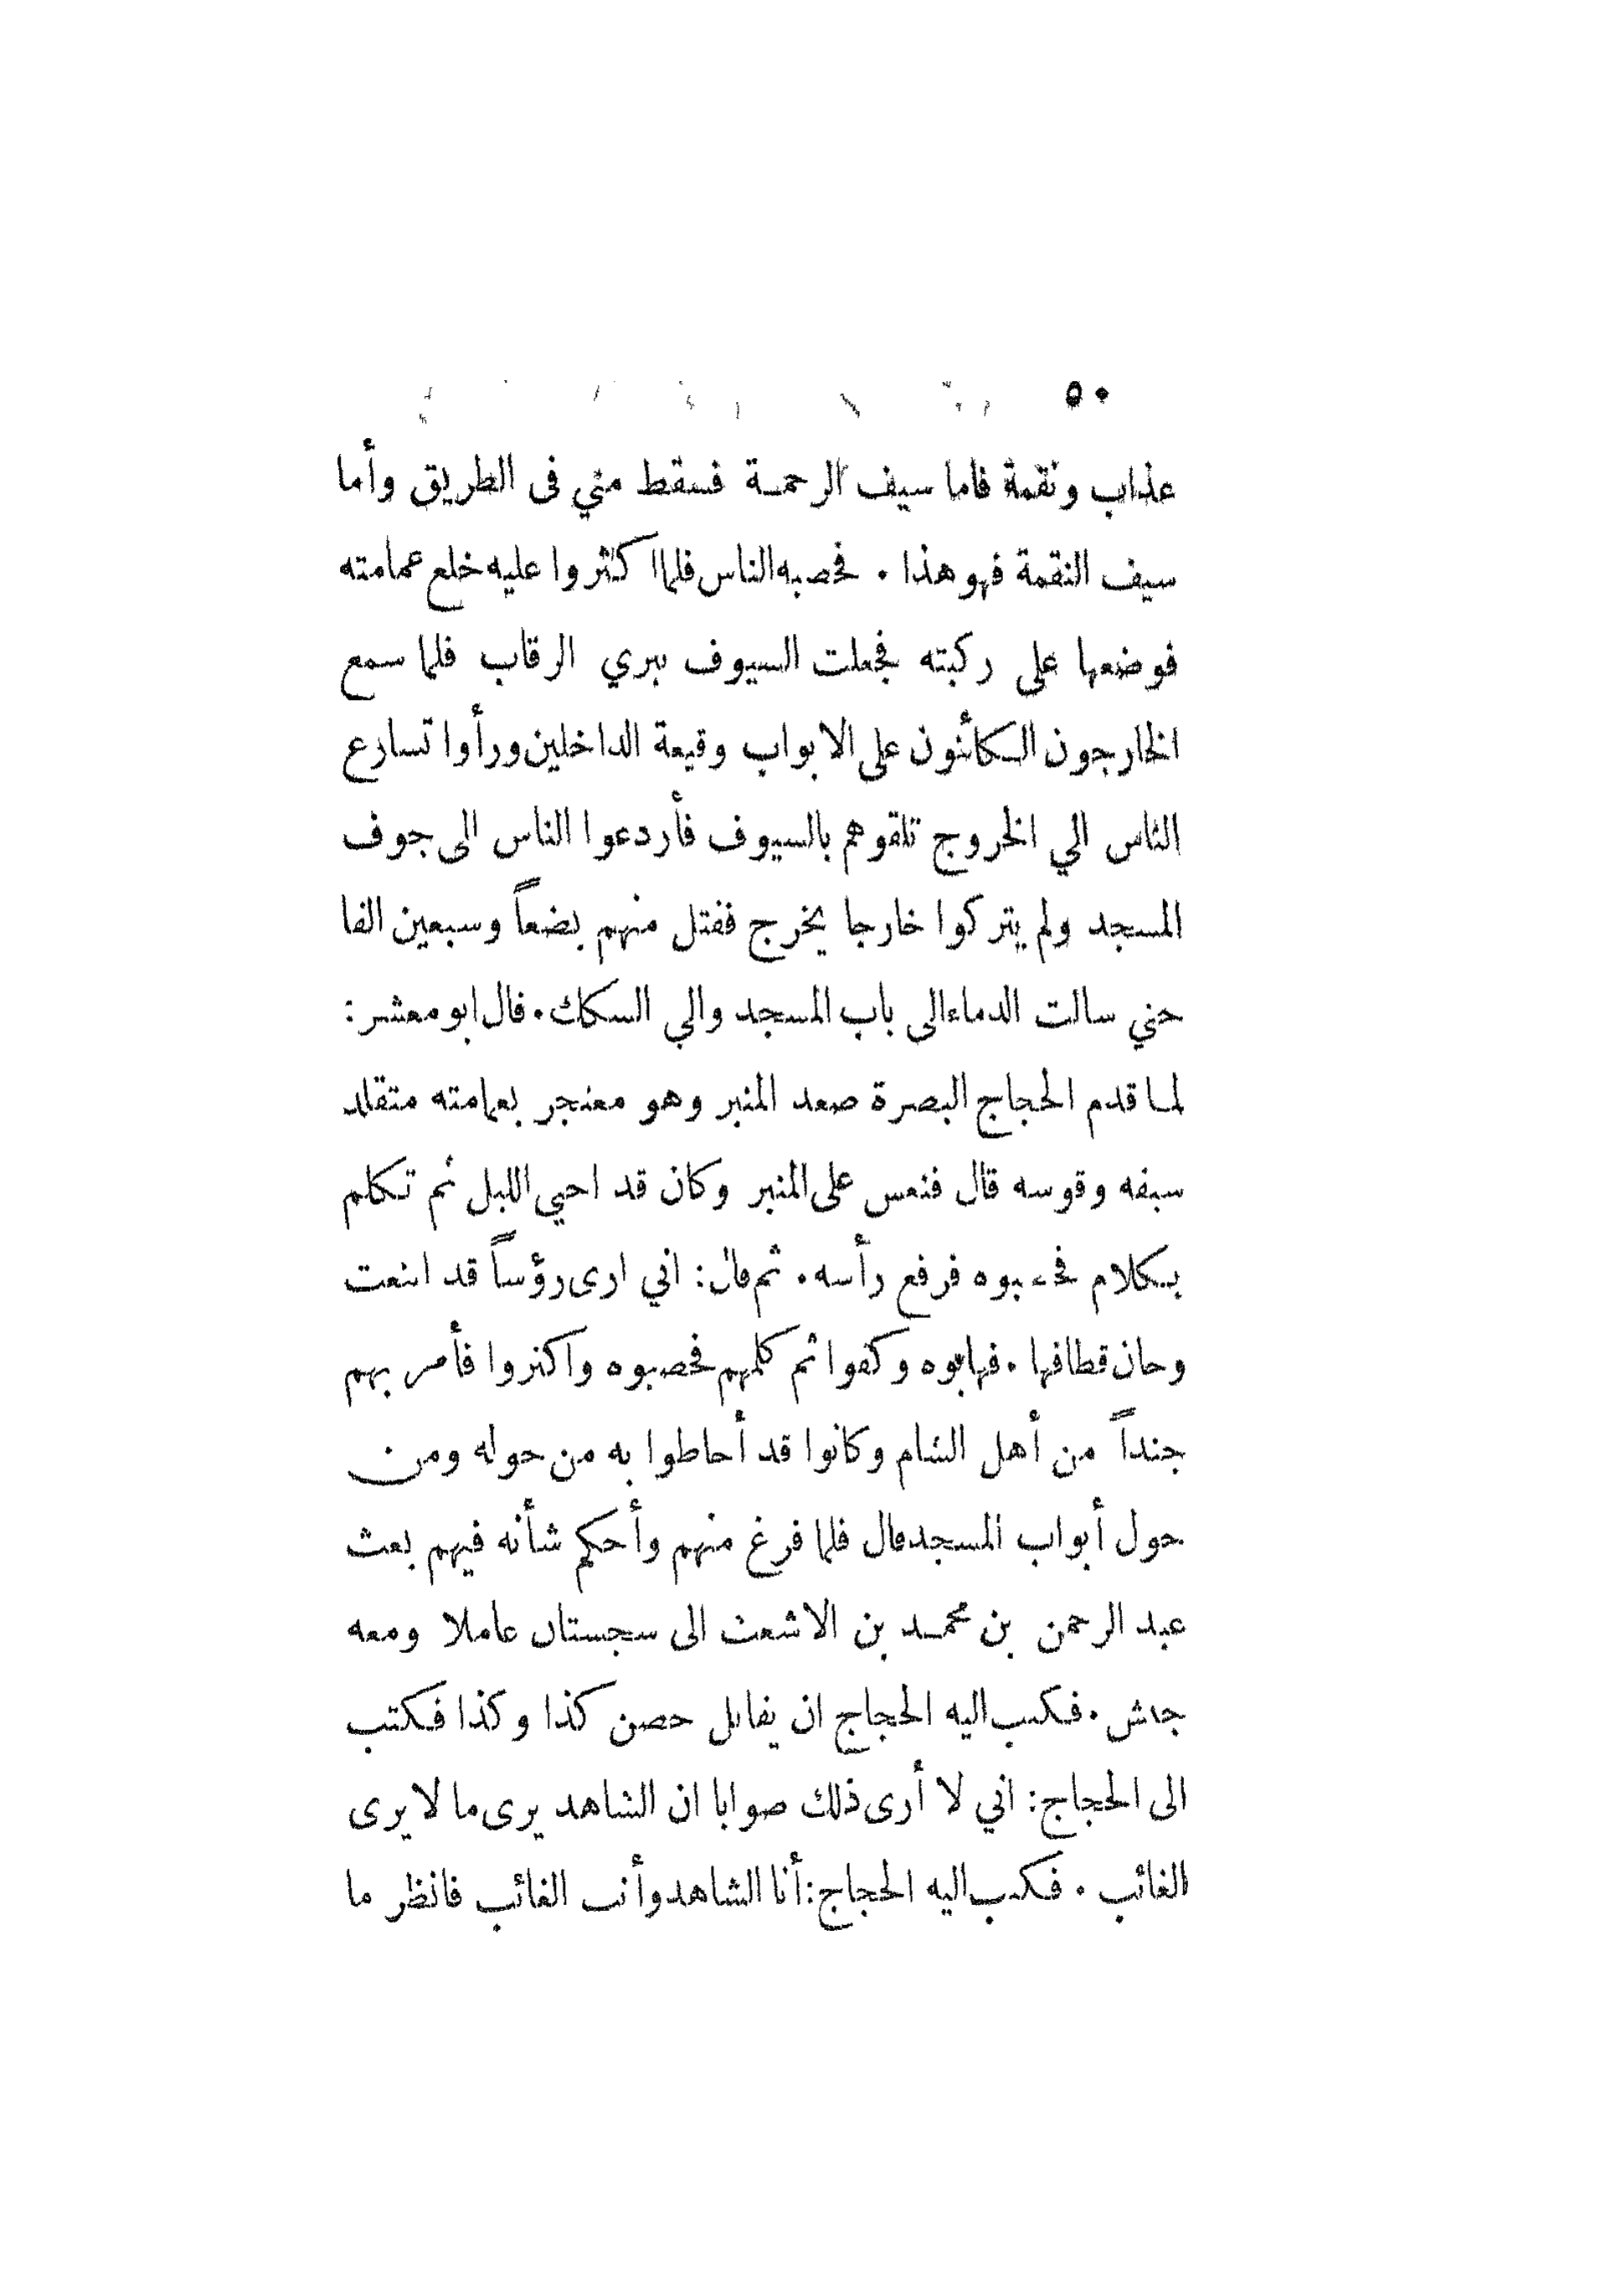 ٥٠
عذاب ونقمة فاما سيف الرحمة فسقط مني فى الطريق وأما
سيف النقمة فهو هذا . فحصبه الناس فلما اكثروا عليه خلع عمامته
فوضعها على ركبته فجعلت السيوف تبري الرقاب فلما سمع
الخارجون الكائنون على الابواب وقيعة الداخلين ورأوا تسارع
الناس الي الخروج تلقوهم بالسيوف فأردعوا الناس الى جوف
المسجد ولم يتركوا خارجا يخرج فقتل منهم بضعاً وسبعين الفا
حتي سالت الدماء الى باب المسجد والي السكك . قال ابو معشر :
لما قدم الحجاج البصرة صعد المنبر وهو معتجر بعمامته متقلد
سيفه وقوسه قال فنعس على المنبر وكان قد احي الليل ثم تكلم
بكلام فحصبوه فرفع رأسه . ثم قال : اني ارى رؤساً قد اينعت
وحان قطافها . فهابوه وكفوا ثم كلمهم فحصبوه واكثروا فأمر بهم
جنداً من أهل الشام وكانوا قد أحاطوا به من حوله ومن
حول أبواب المسجد قال فلما فرغ منهم وأحكم شأنه فيهم بعث
عبد الرحمن بن محمد بن الاشعث الى سجستان عاملا ومعه
جيش . فكتب اليه الحجاج ان يقاتل حصن كذا وكذا فكتب
الى الحجاج : اني لا أرى ذلك صوابا ان الشاهد يرى ما لا يرى
الغائب . فكتب اليه الحجاج : أنا الشاهد وأنت الغائب فانظر ما